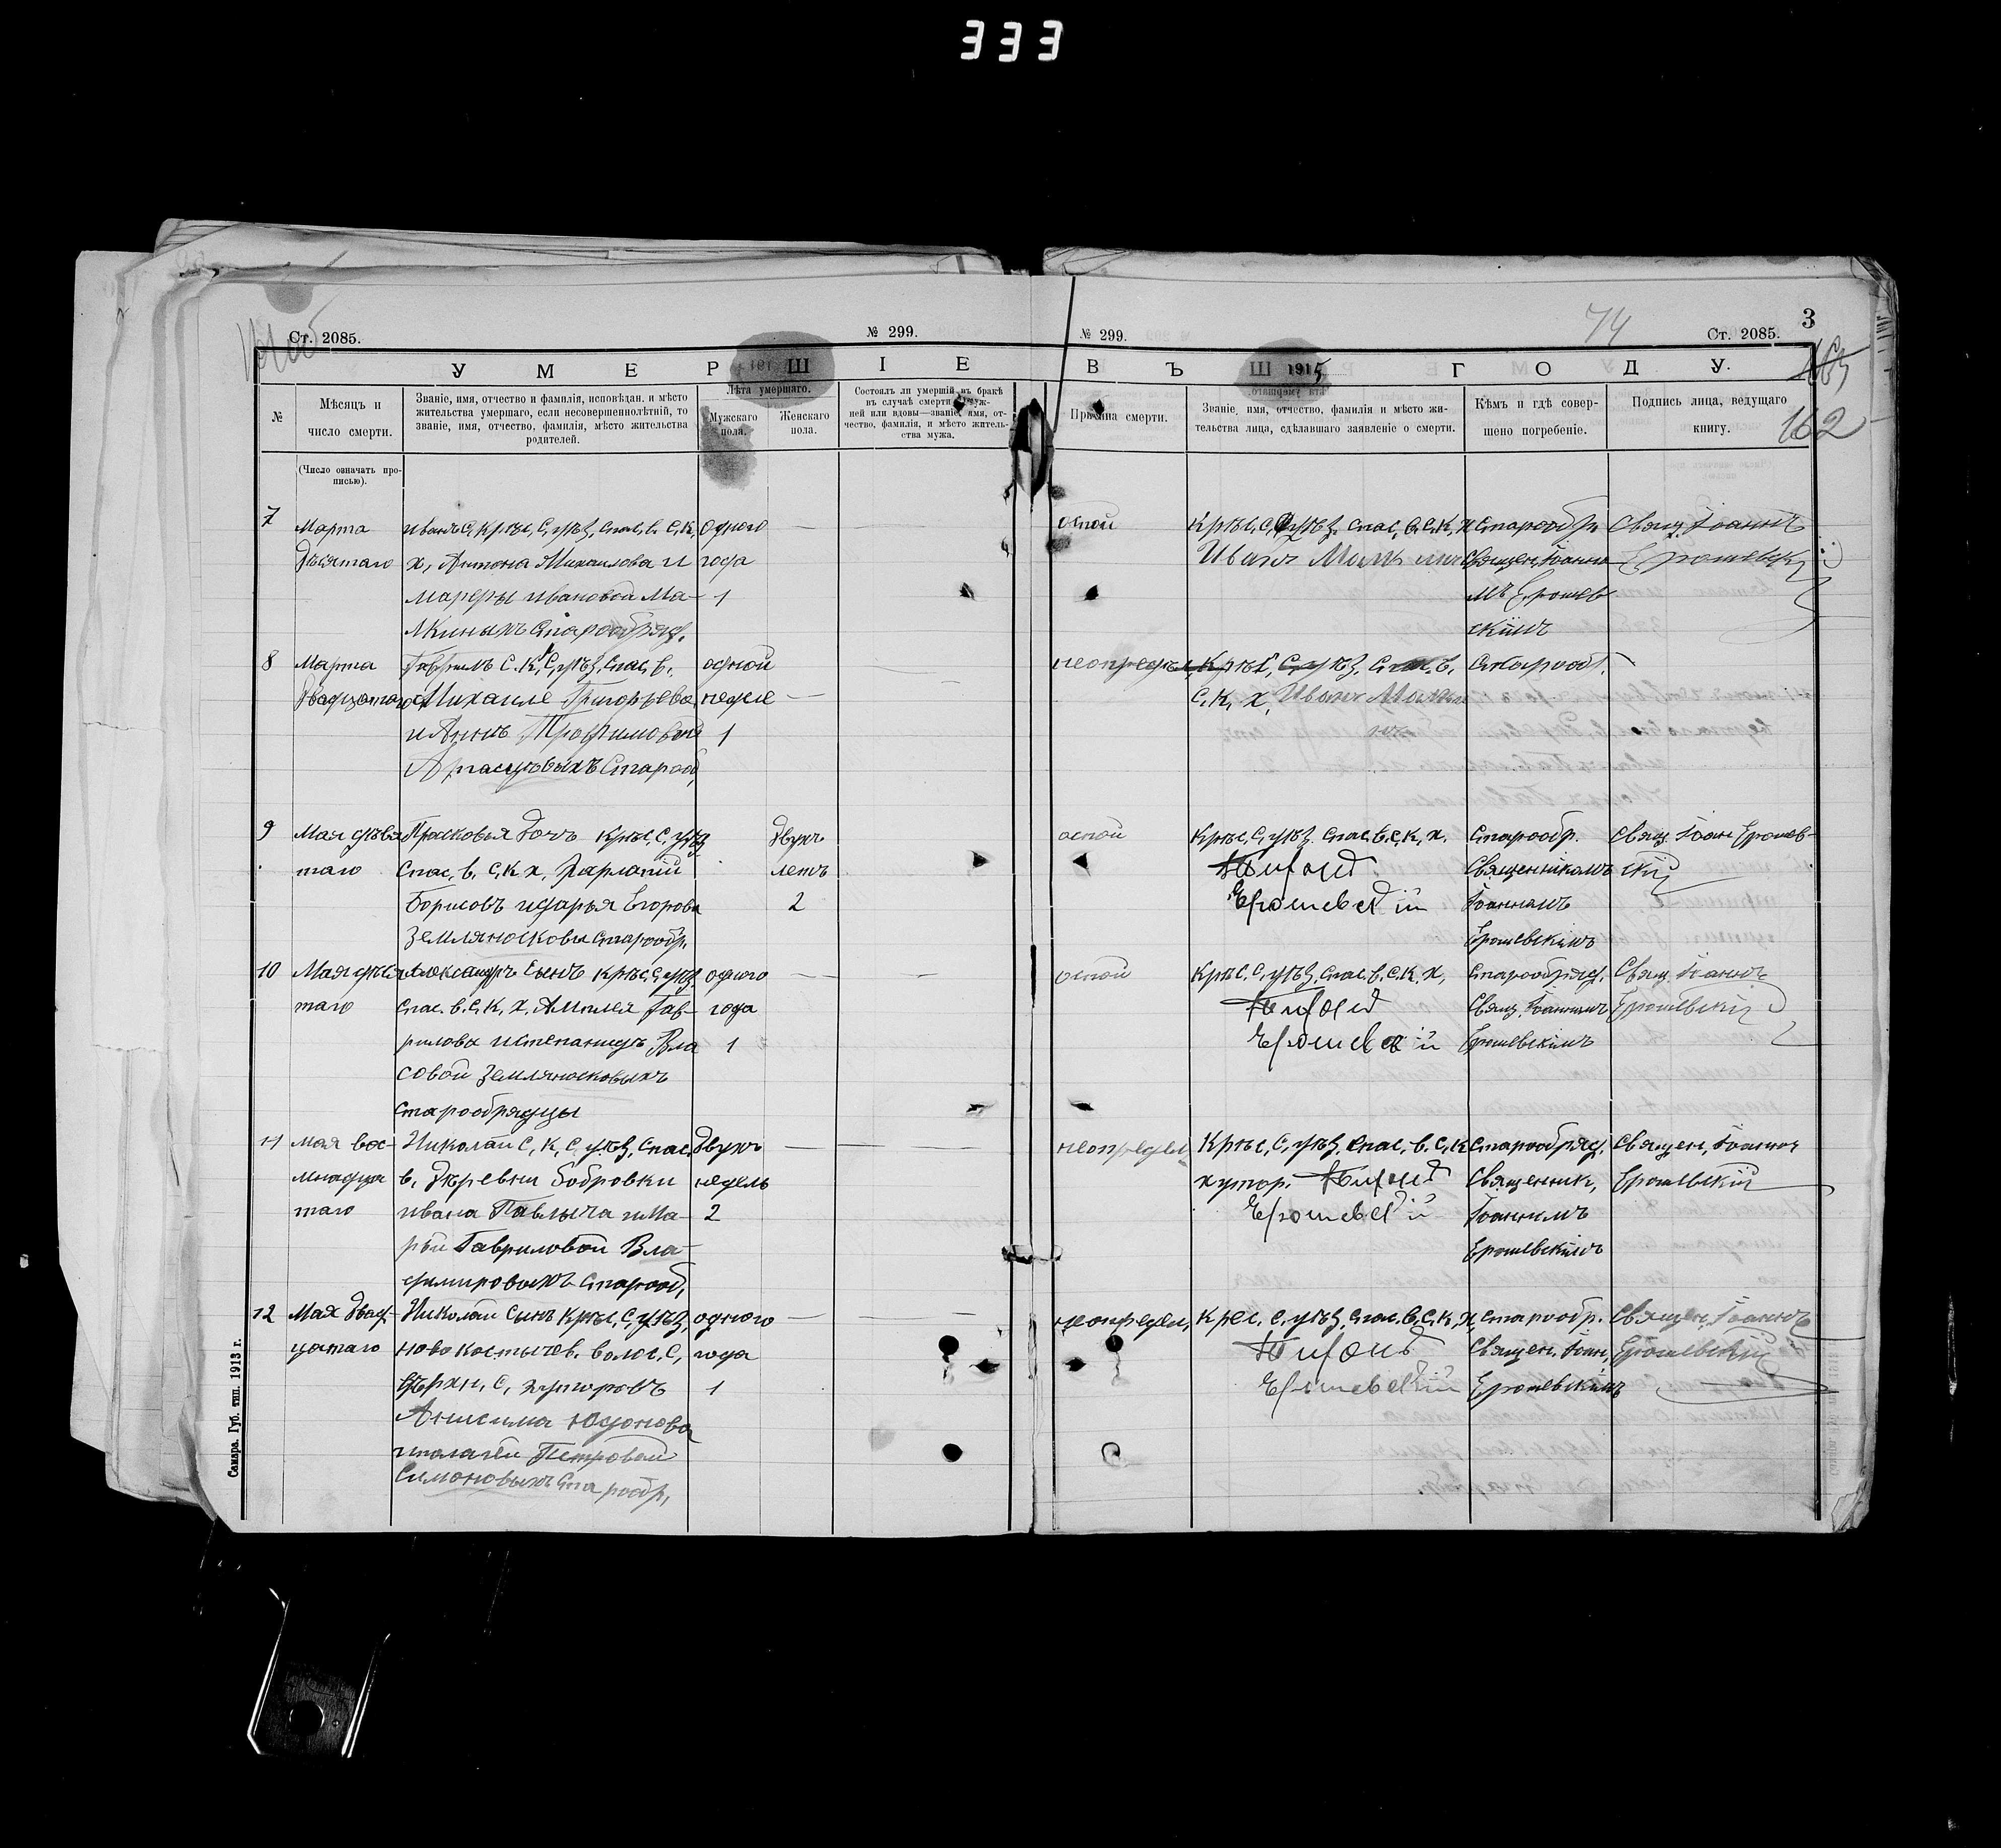 333
Ст. 2085.
№ 299.
№ 299.
74
Ст. 2085.
3
162
УМЕРШІЕ
ВЪ 1915 ГОДУ.
№
Мѣсяцъ и
число смерти.
(Число означать про-
писью).
Званіе, имя, отчество и фамилія, исповѣдан. и мѣсто
жительства умершаго, если несовершеннолѣтній, то
званіе, имя, отчество, фамилія, мѣсто жительства
родителей.
Лѣта умершаго.
Мужскаго
пола.
Женскаго
пола.
Состоялъ ли умершій въ бракѣ
въ случаѣ смерти замуж-
ней или вдовы—званіе, имя, от-
чество, фамилія, и мѣсто житель-
ства мужа.
Причина смерти.
Званіе, имя, отчество, фамилія и мѣсто жи-
тельства лица, сдѣлавшаго заявленіе о смерти.
Кѣмъ и гдѣ совер-
шено погребеніе.
Подпись лица, ведущаго
книгу.
7
Марта
дѣсятаго
иванъ С, крѣс, С, уѣз, спас, в. С, К,
х, Антона Михаилова и
Ивановой Ма-
лкиныхъ старообряд,
одного
года
1
оспой
крѣс, С, уѣз, спас, в, С, К, х
Иванъ
старообр
священ, Іоанно
мъ Ерошев
скимъ
Свящ. Іоаннъ
Ерошевск
8
Марта
двадцатаго
Гаврилъ С. К, С, уѣз, спас, в.
Михаиле Григорьева
и Аннъ Трофимовой
Старооб,
одной
неделе
1
неопредел,
крѣс, С, уѣз, спас, в.
С, К, х, Иванъ
Старооб,
9
Мая дѣвя
таго
Прасковья дочь крѣс, С, уѣз
спас, в. С, К х, Харлатій
Борисовъ идарья Егорова
Землянсковы старообр,
двухъ
летъ
2
оспой
крѣс, С, уѣз спас, в, С, К, х.
Тифонъ
Ерошевскій
Старообр.
Священникомъ
Іоанномъ
Ерошевскимъ
свящ. Іоан Ерошев-
скій
10
Мая дѣся
таго
Александръ сынъ крѣс, С, уѣз
спас. в. С, К, х, Гав-
рилова истепаниды Вла
совой Землянсковыхъ
старообрядцы
одного
года
1
оспой
крѣс. С, уѣз, спас, в. С, К, х,
Тифонъ
Ерошевскій
старообряд,
Свящ. Іоанномъ
Ерошевскимъ
Свящ. Іоаннъ
Ерошевскій
11
мая вос-
мнадца
таго
Николай С, К, С, уѣз, спас,
в, дѣревни Бобровки
ивана Павлыча и Ма-
рьи Гавриловой Вла-
димировыхъ старооб,
двухъ
недель
2
неопредел,
крѣс, С, уѣз, спас, в. С, К
хутор. Тифонъ
Ерошевскій
старообряд,
Священник,
Іоанномъ
Ерошевскимъ
священ, Іоаннъ
Ерошевскій
12
Мая двад-
цатаго
Николай сынъ крѣс, С, уѣз,
ново костычев. волос, С,
Вѣрхн, С, хуторовъ
Анисима Юдонова
Петровой
Симоновыхъ старообр,
одного
года
1
неопредел,
крес, С, уѣз, спас. в, С, К, х,
Тифонъ
Ерошевскій
старообр.
священ. Іоан,
Ерошевскимъ
Священ, Іоаннъ
Ерошевскій
Самара. Губ. тип. 1913 г.